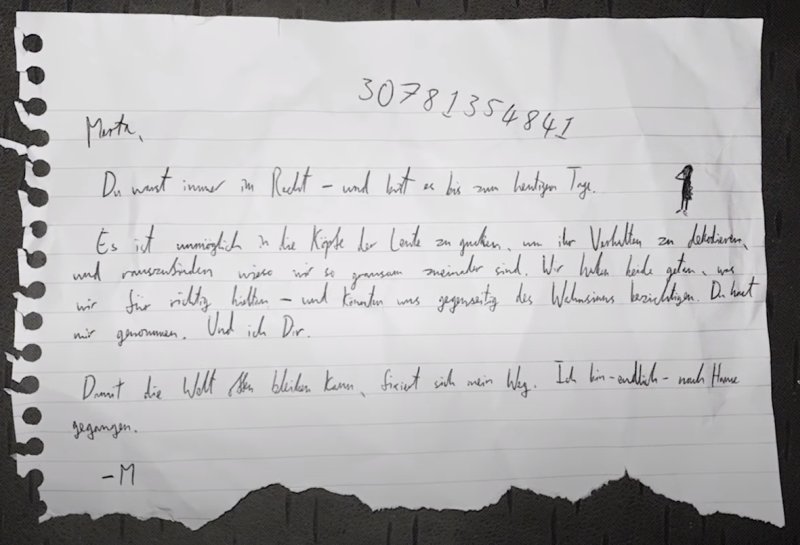 30781354841
Marta,
Du warst immer im Recht – und bist es bis zum heutigen Tage.
Es ist unmöglich in die Köpfe der Leute zu gucken, um ihr Verhalten zu dekodieren,
und rauszufinden wieso wir so grausam zueinander sind. Wir haben beide getan, was
wir für richtig hielten – und könnten uns gegenseitig des Wahnsinns bezichtigen. Du hast
mir genommen. Und ich Dir.
Damit die Welt offen bleiben kann, fixiert sich mein Weg. Ich bin – endlich – nach Hause
gegangen.
– M